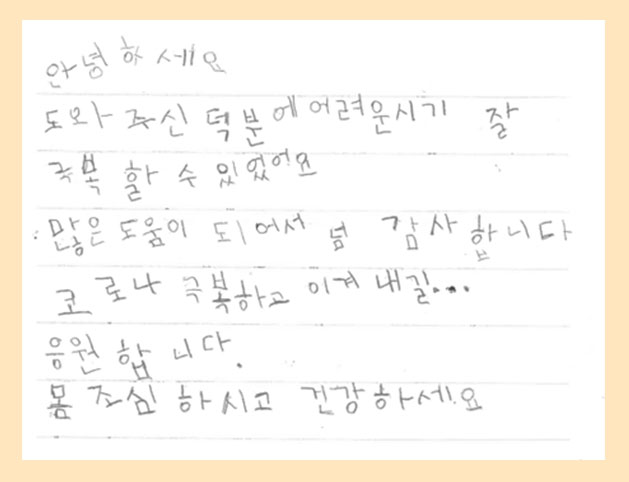 안녕하세요
도와주신 덕분에 어려운시기 잘
극복 할 수 있었어요
많은 도움이 되어서 넘 감사합니다
코로나 극복하고 이겨 내길...
응원 합니다.
몸 조심 하시고 건강하세요